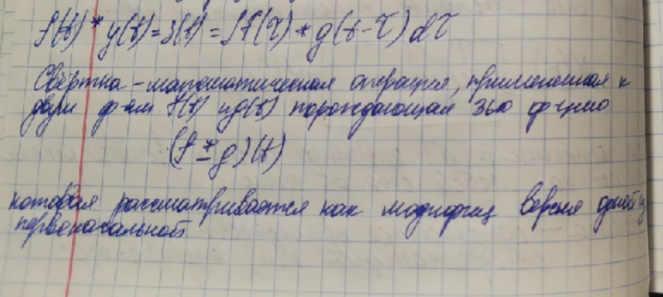 f(t) * y(t) = s(t) = ∫f(τ) * g(t-τ) dτ
Свёртка - математическая операция, применённая к
двум ф-ям f(t) и g(t) порождающая 3ью ф-цию
(f * g)(t)
которая рассматривается как модифиц версия одной из
первоначальной